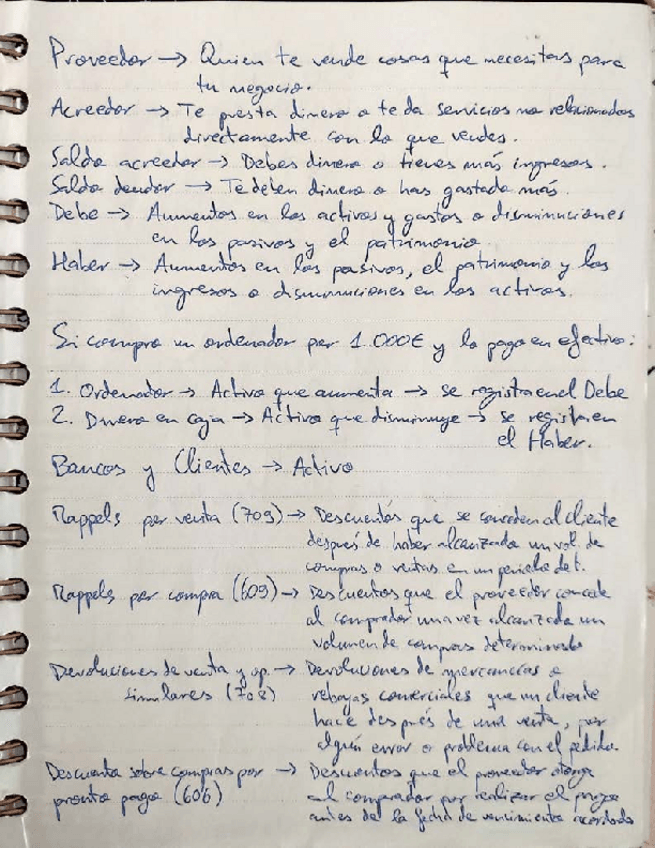 Proveedor → Quien te vende cosas que necesitas para
tu negocio.
Acreedor → Te presta dinero o te da servicios no relacionados
directamente con lo que vendes.
Saldo acreedor → Debes dinero o tienes más ingresos.
Saldo deudor → Te deben dinero o has gastado más.
Debe → Aumentos en los activos y gastos o disminuciones
en los pasivos y el patrimonio.
Haber → Aumentos en los pasivos, el patrimonio y los
ingresos o disminuciones en los activos.
Si compro un ordenador por 1.000€ y lo pago en efectivo:
1. Ordenador → Activo que aumenta → se registra en el Debe
2. Dinero en caja → Activo que disminuye → se registra en
el Haber.
Bancos y Clientes → Activo
Rappels por venta (709) → Descuentos que se conceden al cliente
después de haber alcanzado un vol. de
compras o ventas en un periodo de t.
Rappels por compra (609) → Descuentos que el proveedor concede
al comprador una vez alcanzada un
volumen de compras determinado
Devoluciones de venta y op. → Devoluciones de mercancías o
similares (708) rebajas comerciales que un cliente
hace después de una venta, por
algún error o problema con el pedido.
Descuento sobre compras por → Descuentos que el proveedor otorga
pronto pago (606) al comprador por realizar el pago
antes de la fecha de vencimiento acordada